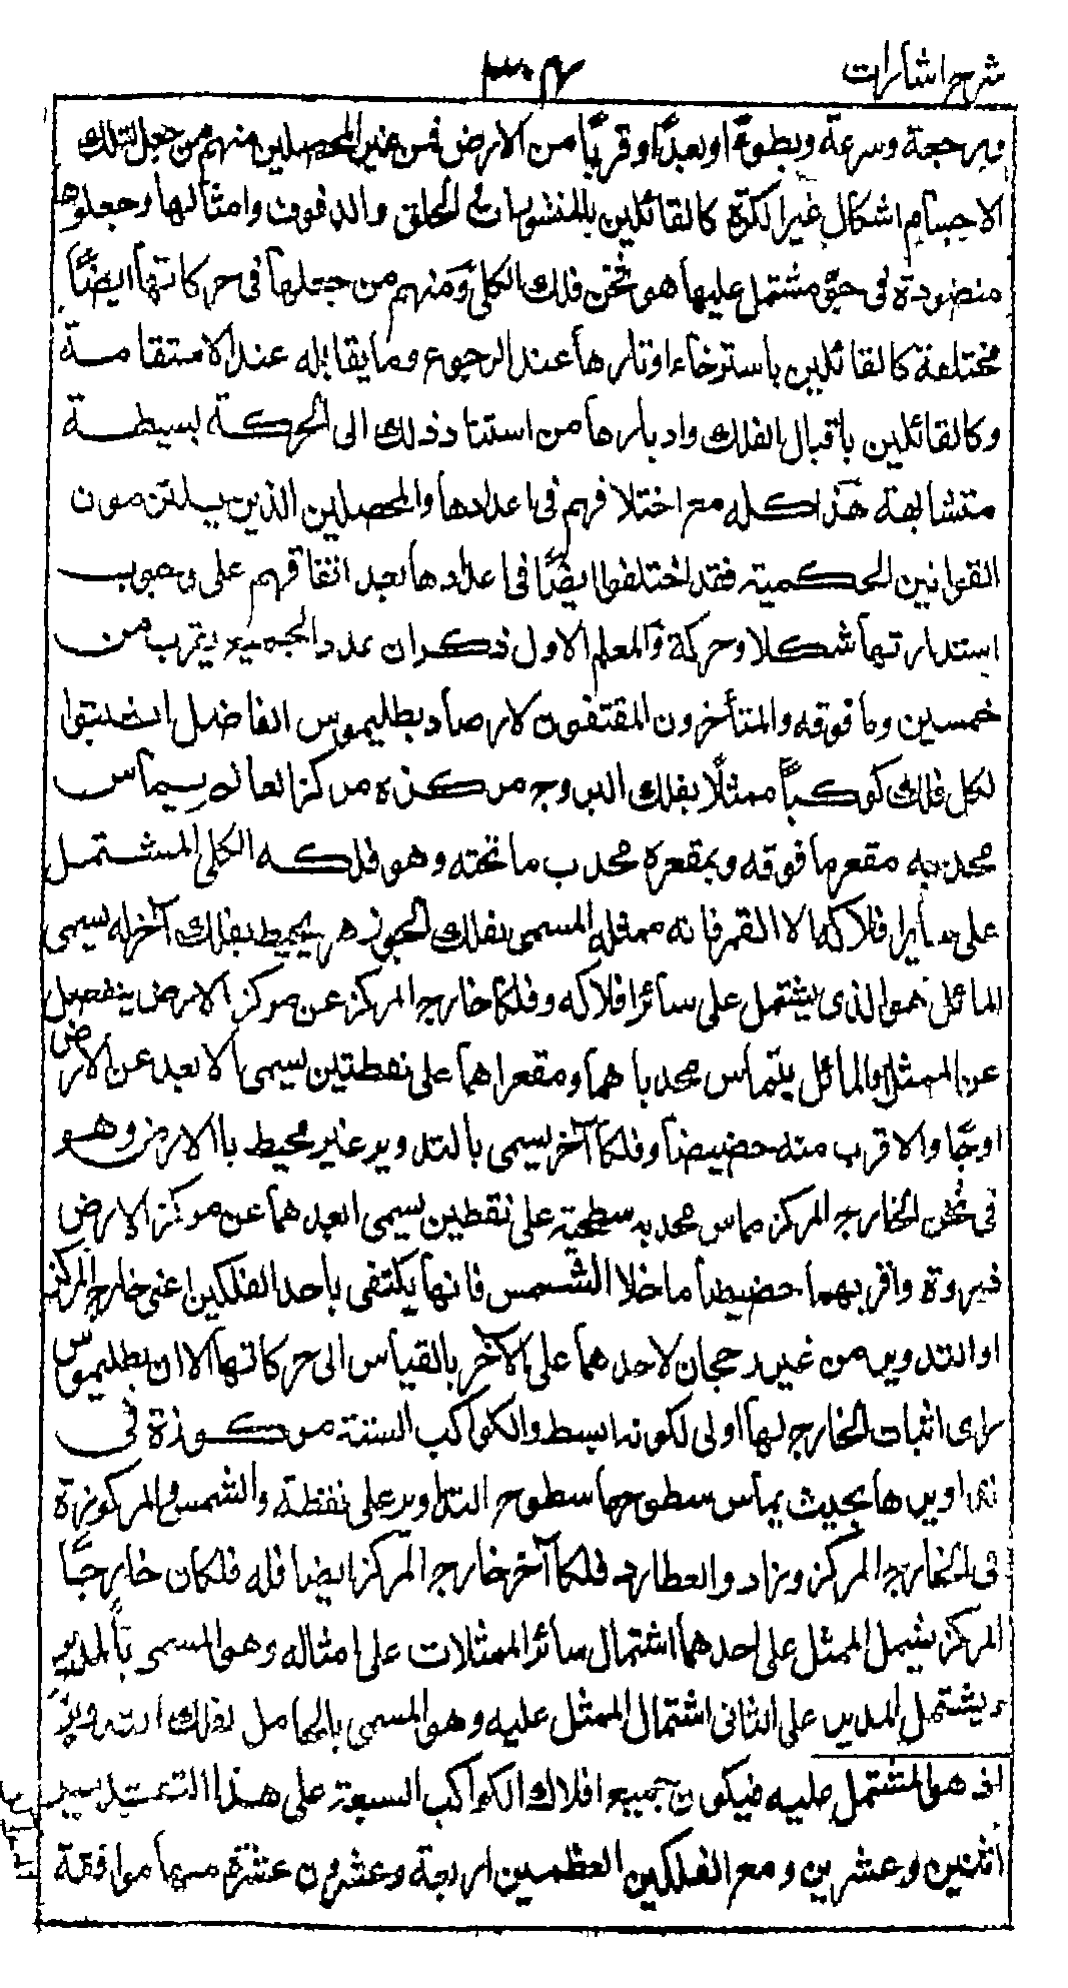 شرح اشارات
ورجعة وسرعة وبطوءً او بعدًا وقربًا من الارض فمن غير المحصلين منهم من جعل لتلك
الاجسام اشكال غير الكرة كالقائلين بالمنشورات الحلق والدفوف وامثالها وجعلوها
منضودة فى جو مشتمل عليها هو ثخن فلك الكلى ومنهم من جعلها فى حركاتها ايضًا
مختلفة كالقائلين باسترخاء اوتارها عند الرجوع وما يقابله عند الاستقامة
وكالقائلين باقبال الفلك وادبارها من استناد ذلك الى الحركة بسيطة
متشابهة هذا كله مع اختلافهم فى اعدادها والمحصلين الذين يلتزمون
القوانين الحكمية فقد اختلفوا ايضًا فى اعدادها بعد اتفاقهم على وجوب
استدارتها شكلا وحركة والمعلم الاول ذكر ان عدد الجميع يقرب من
خمسين وما فوقه والمتأخرون المقتفون لارصاد بطليموس الفاضل اثبتوا
لكل فلك كوكبًا ممثلًا بفلك البروج مركزه مركز العالم يماس
محدبه مقعر ما فوقه وبمقعره محدب ما تحته وهو فلكه الكلى المشتمل
على سائر افلاكه الا القمر فانه ممثله المسمى بفلك الجوزهر يحيط بفلك آخر له يسمى
المائل هو الذى يشتمل على سائر افلاكه وفلكا خارج المركز عن مركز الارض ينفصل
عن الممثل والمائل يتماس محدباهما ومقعراهما على نقطتين يسمى الابعد عن الارض
اوجًا والاقرب منه حضيضا وفلكا آخر يسمى بالتدوير غير محيط باالارض وهو
فى ثخن الخارج المركز مماس محدبه سطحيه على نقطين يسمى ابعدهما عن مركز الارض
ذروة واقربهما حضيضا ما خلا الشمس فانها يكتفى باحد الفلكين اعنى خارج المركز
او التدوير من غير رجحان لاحدهما على الآخر بالقياس الى حركاتها الا ان بطليموس
راى اثبات الخارج لها اولى لكونه ابسط والكواكب الستة مركوزة فى
تداويرها بحيث يماس سطوحها سطوح التداوير على نقطة والشمس المركوزة
فى الخارج المركز وزاد والعطارد فلكا آخر خارج المركز ايضا فله فلكان خارجًا
المركز يشمل الممثل على احدهما اشتمال سائر الممثلات على امثاله وهو المسمى بالمدير
ويشتمل المدير على الثانى اشتمال الممثل عليه وهو المسمى بالحامل لفلك التدوير
اذ هو المشتمل عليه فيكون جميع افلاك الكواكب السبعة على هذا التقدير
أثنين وعشرين ومع الفلكين العظمين اربعة وعشرون عشرة منها موافقة